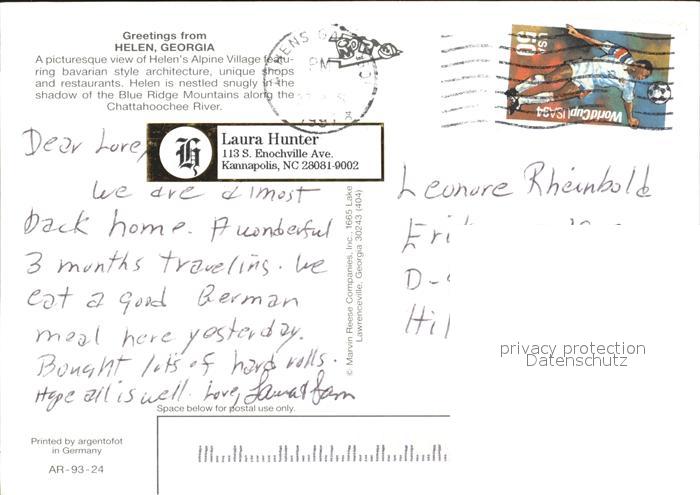 Greetings from
HELEN, GEORGIA
A picturesque view of Helen's Alpine Village featu-
ring bavarian style architecture, unique shops
and restaurants. Helen is nestled snugly in the
shadow of the Blue Ridge Mountains along the
Chattahoochee River.
ATHENS GA
PM
50
USA
WorldCupUSA94
Laura Hunter
113 S. Enochville Ave.
Kannapolis, NC 28081-9002
Dear Lore,
We are almost
back home. A wonderful
3 months traveling. We
eat a good German
meal here yesterday.
Bought lots of hard rolls.
Hope all is well. Love, Laura & Sam
© Marvin Reese Companies, Inc., 1665 Lake
Lawrenceville, Georgia 30243 (404)
Leonore Rheinbold
Eri
D-
Hil
privacy protection
Datenschutz
Space below for postal use only.
Printed by argentofot
in Germany
AR-93-24